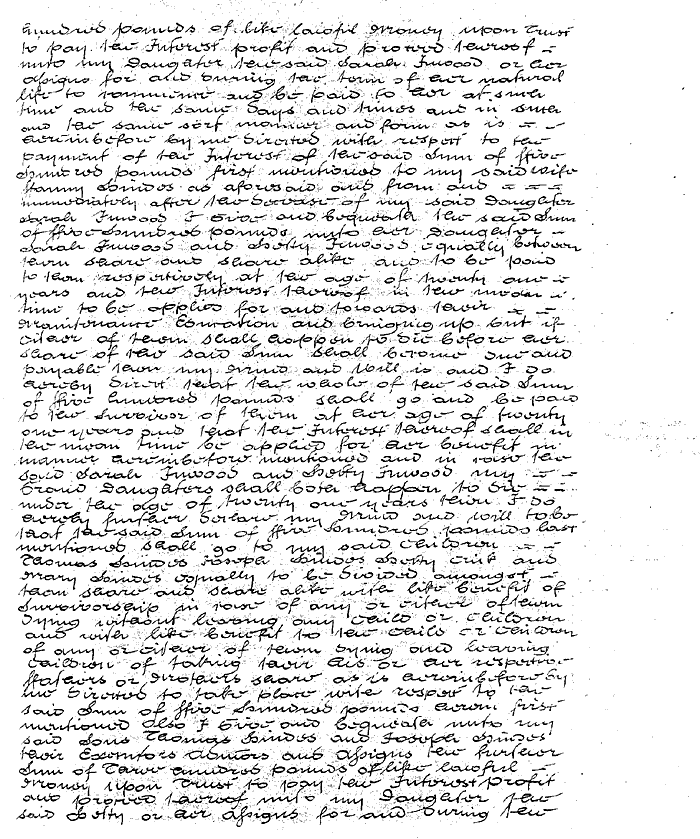 hundred pounds of like lawful Money upon Trust
to pay the Interest profit and proceed thereof
unto my Daughter the said Sarah Inwood or her
assigns for and during the term of her natural
life to commence and be paid to her at such
time and the same days and times and in such
and the same sort manner and form as is
hereinbefore by me directed with respect to the
payment of the Interest of the said Sum of ffive
hundred pounds first mentioned to my said wife
Hinndes as aforesaid and from and
immediately after the decease of my said Daughter
Sarah Inwood I Give and bequeath the said Sum
of ffive hundred pounds unto her Daughter
Sarah Inwood and Betty Inwood equally between
them share and share alike and to be paid
to them respectively at the age of twenty one
years and the Interest thereof in the mean
time to be applied for and towards their
Maintenance Education and bringing up but if
either of them shall happen to die before her
share of the said Sum shall become due and
payable then my mind and will is and I do
hereby direct that the whole of the said Sum
of ffive hundred pounds shall go and be paid
to the Survivor of them at her age of twenty
one years and that the Interest thereof shall in
the mean time be applied for her benefit in
manner hereinbefore mentioned and in case the
said Sarah Inwood and Betty Inwood my
Grand Daughters shall both happen to die
under the age of twenty one years then I do
hereby further declare my mind and will to be
that the said Sum of ffive hundred pounds last
mentioned shall go to my said Children
Thomas Joseph Betty and
Mary equally to be divided amongst
them share and share alike with like benefit of
Survivorship in case of any or either of them
dying without leaving any child or Children
and with like benefit to the child or Children
of any or either of them dying and leaving
Children of taking their his or her respective
ffathers or Mothers share as is hereinbefore by
me directed to take place with respect to the
said Sum of ffive hundred pounds herein first
mentioned Also I Give and bequeath unto my
said Sons Thomas and Joseph
their Executors Admors and Assigns the further
Sum of Three hundred pounds of like lawful
Money upon Trust to pay the Interest profit
and proceed thereof unto my Daughter the
said Betty or her Assigns for and during the